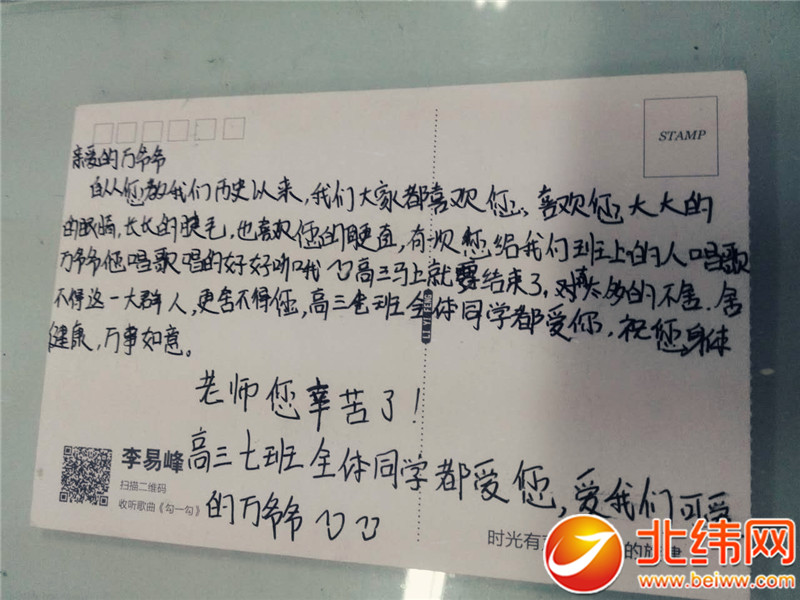 STAMP
亲爱的万爷爷
自从您教我们历史以来,我们大家都喜欢您、喜欢您大大的
的眼睛,长长的睫毛,也喜欢您的耿直,有一次您给我们班上的人唱歌
万爷爷您唱歌唱的好好听哦 高三马上就要结束了,对太多的不舍.舍
不得这一大群人,更舍不得您,高三七班全体同学都爱你,祝您身体
健康,万事如意。
老师您辛苦了!
李易峰
高三七班全体同学都爱您,爱我们可爱
的万爷爷
扫描二维码
收听歌曲《勾一勾》
时光有
的旋律
北纬网
www.beiww.com